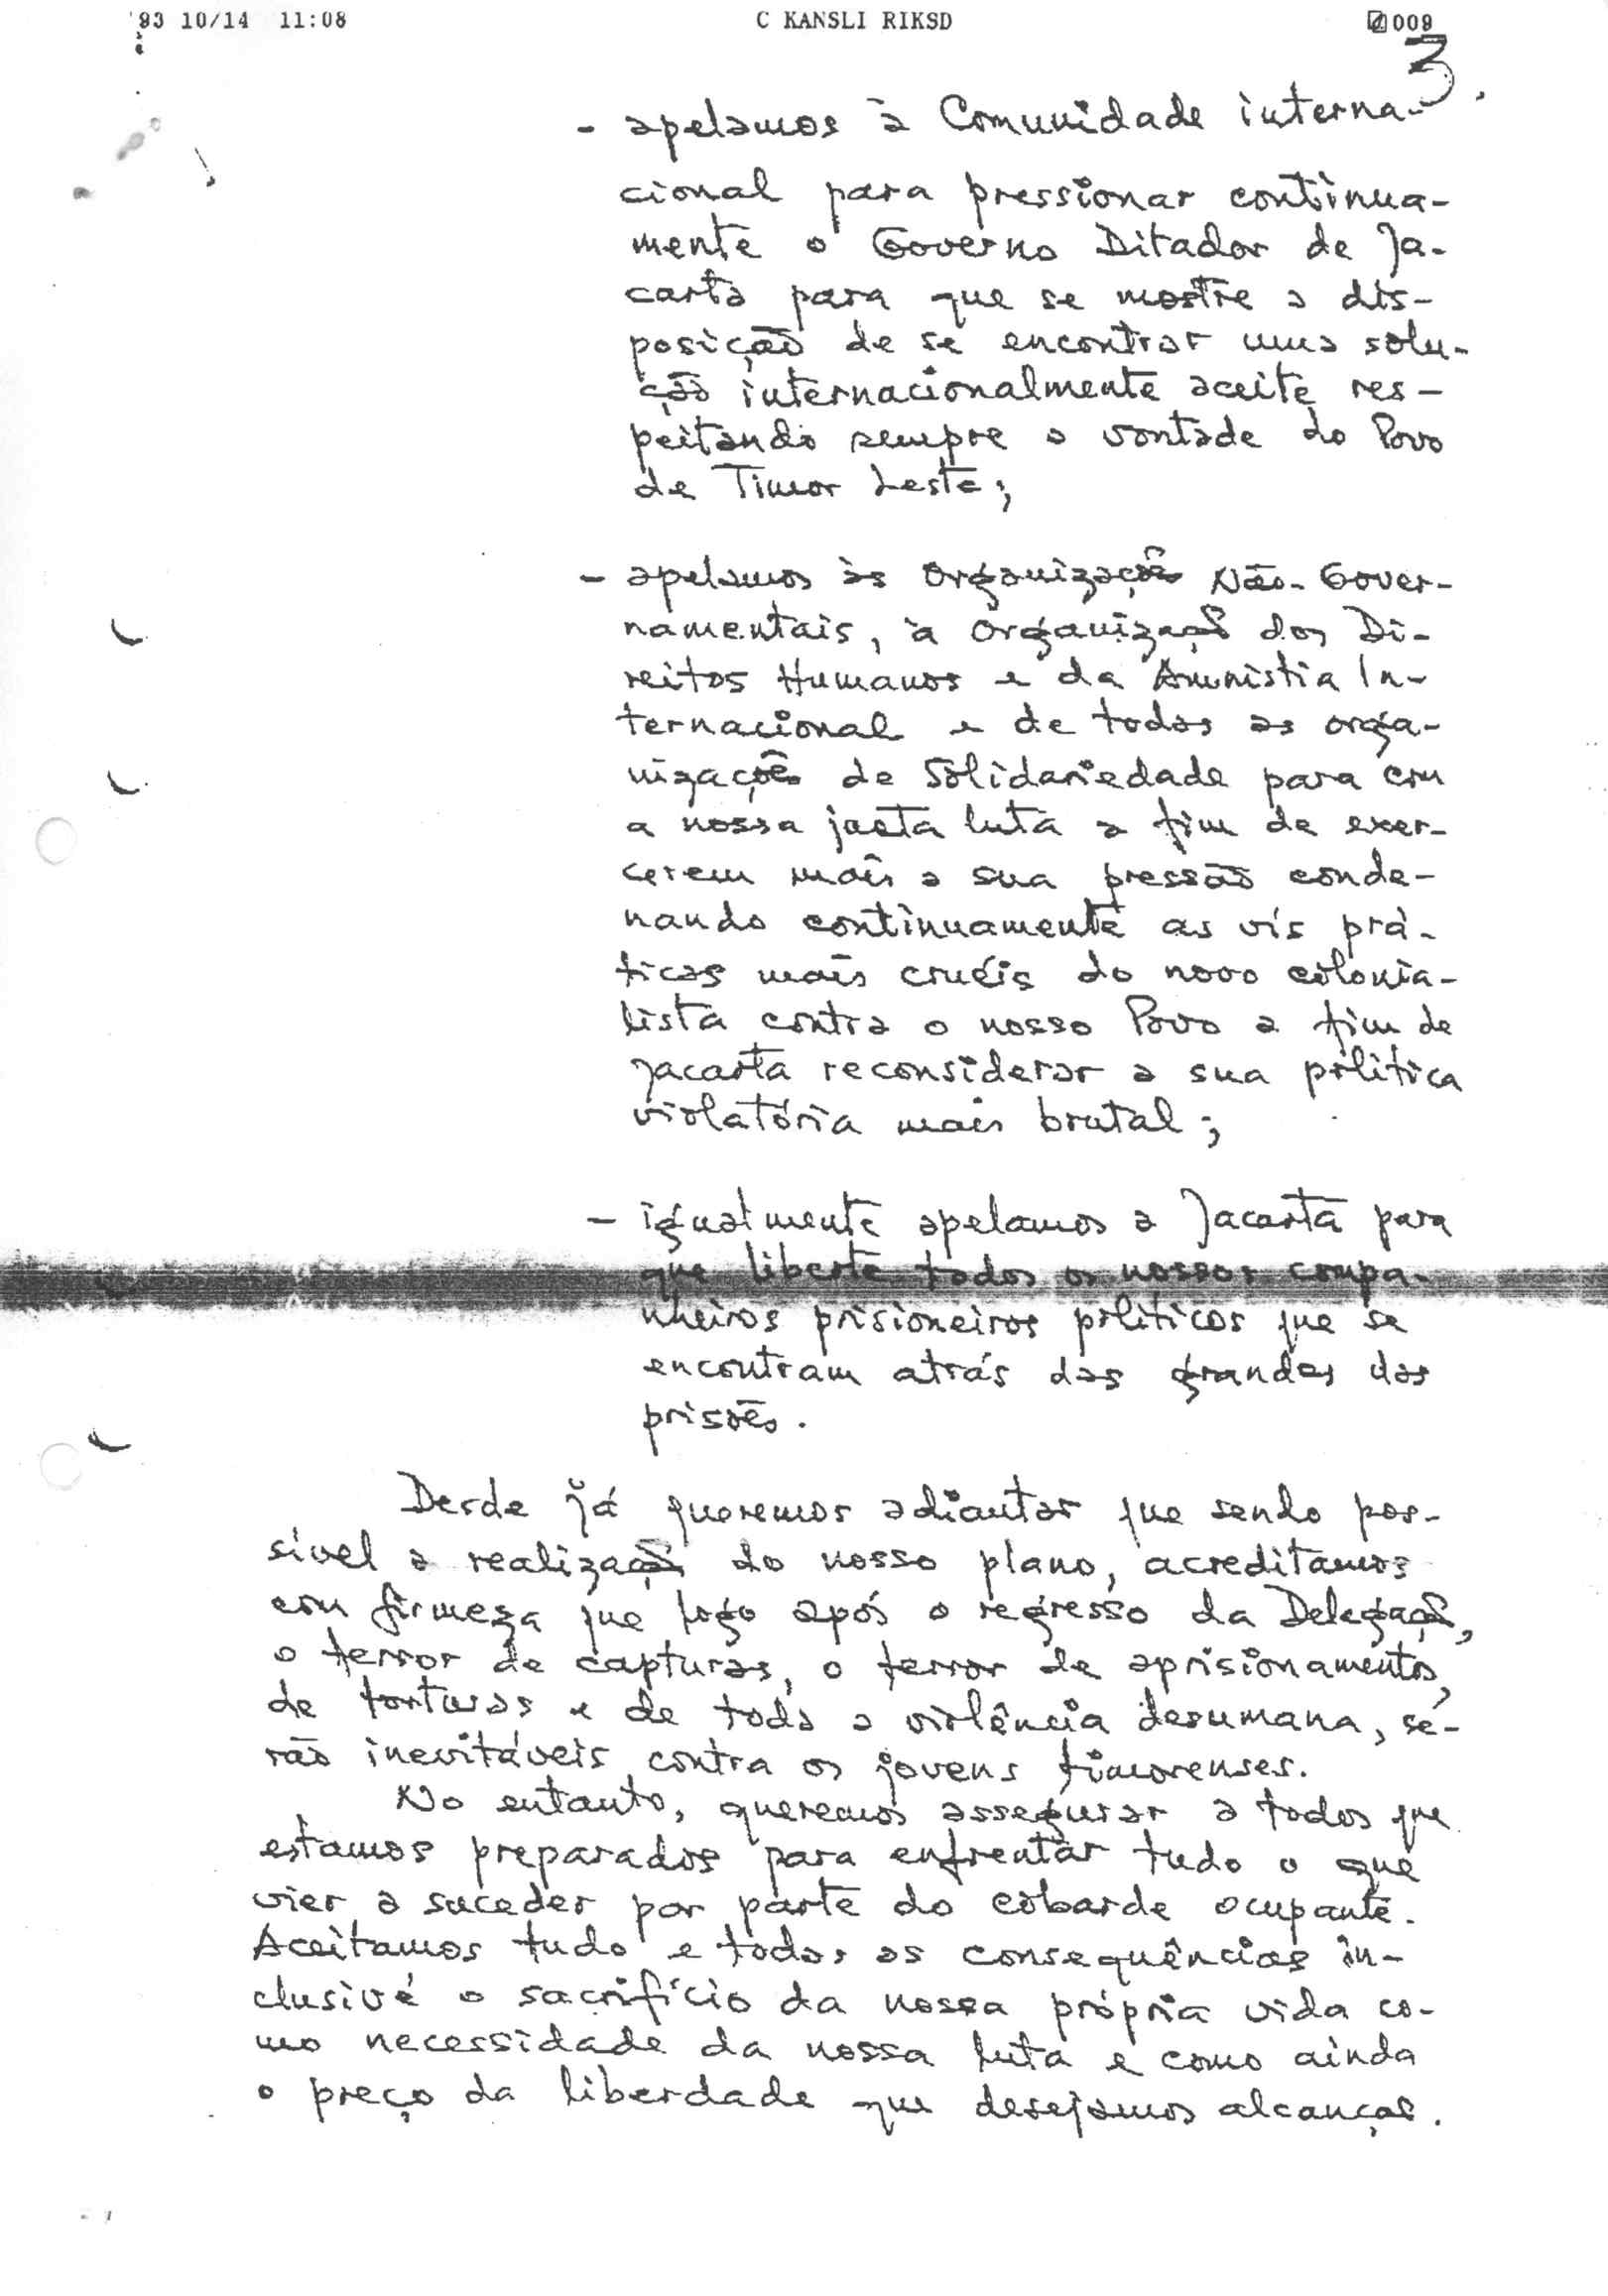 '93 10/14 11:08 C KANSLI RIKSD 009
3.
- apelamos à Comunidade interna-
cional para pressionar continua-
mente o Governo Ditador de Ja-
carta para que se mostre a dis-
posição de se encontrar uma solu-
ção internacionalmente aceite res-
peitando sempre a vontade do Povo
de Timor Leste;
- apelamos às Organizações Não-Gover-
namentais, à Organização dos Di-
reitos Humanos e da Amnistia In-
ternacional e de todas as orga-
nizações de Solidariedade para com
a nossa justa luta a fim de exer-
cerem mais a sua pressão conde-
nando continuamente as vis prá-
ticas mais cruéis do novo colonia-
lista contra o nosso Povo a fim de
Jacarta reconsiderar a sua política
violatória mais brutal;
- igualmente apelamos a Jacarta para
que liberte todos os nossos compa-
nheiros prisioneiros políticos que se
encontram atrás das grandes das
prisões.
Desde já queremos adiantar que sendo pos-
sível a realização do nosso plano, acreditamos
com firmeza que logo após o regresso da Delegação,
o terror de capturas, o terror de aprisionamentos,
de torturas e de toda a violência desumana, se-
rão inevitáveis contra os jovens timorenses.
No entanto, queremos assegurar a todos que
estamos preparados para enfrentar tudo o que
vier a suceder por parte do cobarde ocupante.
Aceitamos tudo e todas as consequências in-
clusivé o sacrifício da nossa própria vida co-
mo necessidade da nossa luta e como ainda
o preço da liberdade que desejamos alcançar.